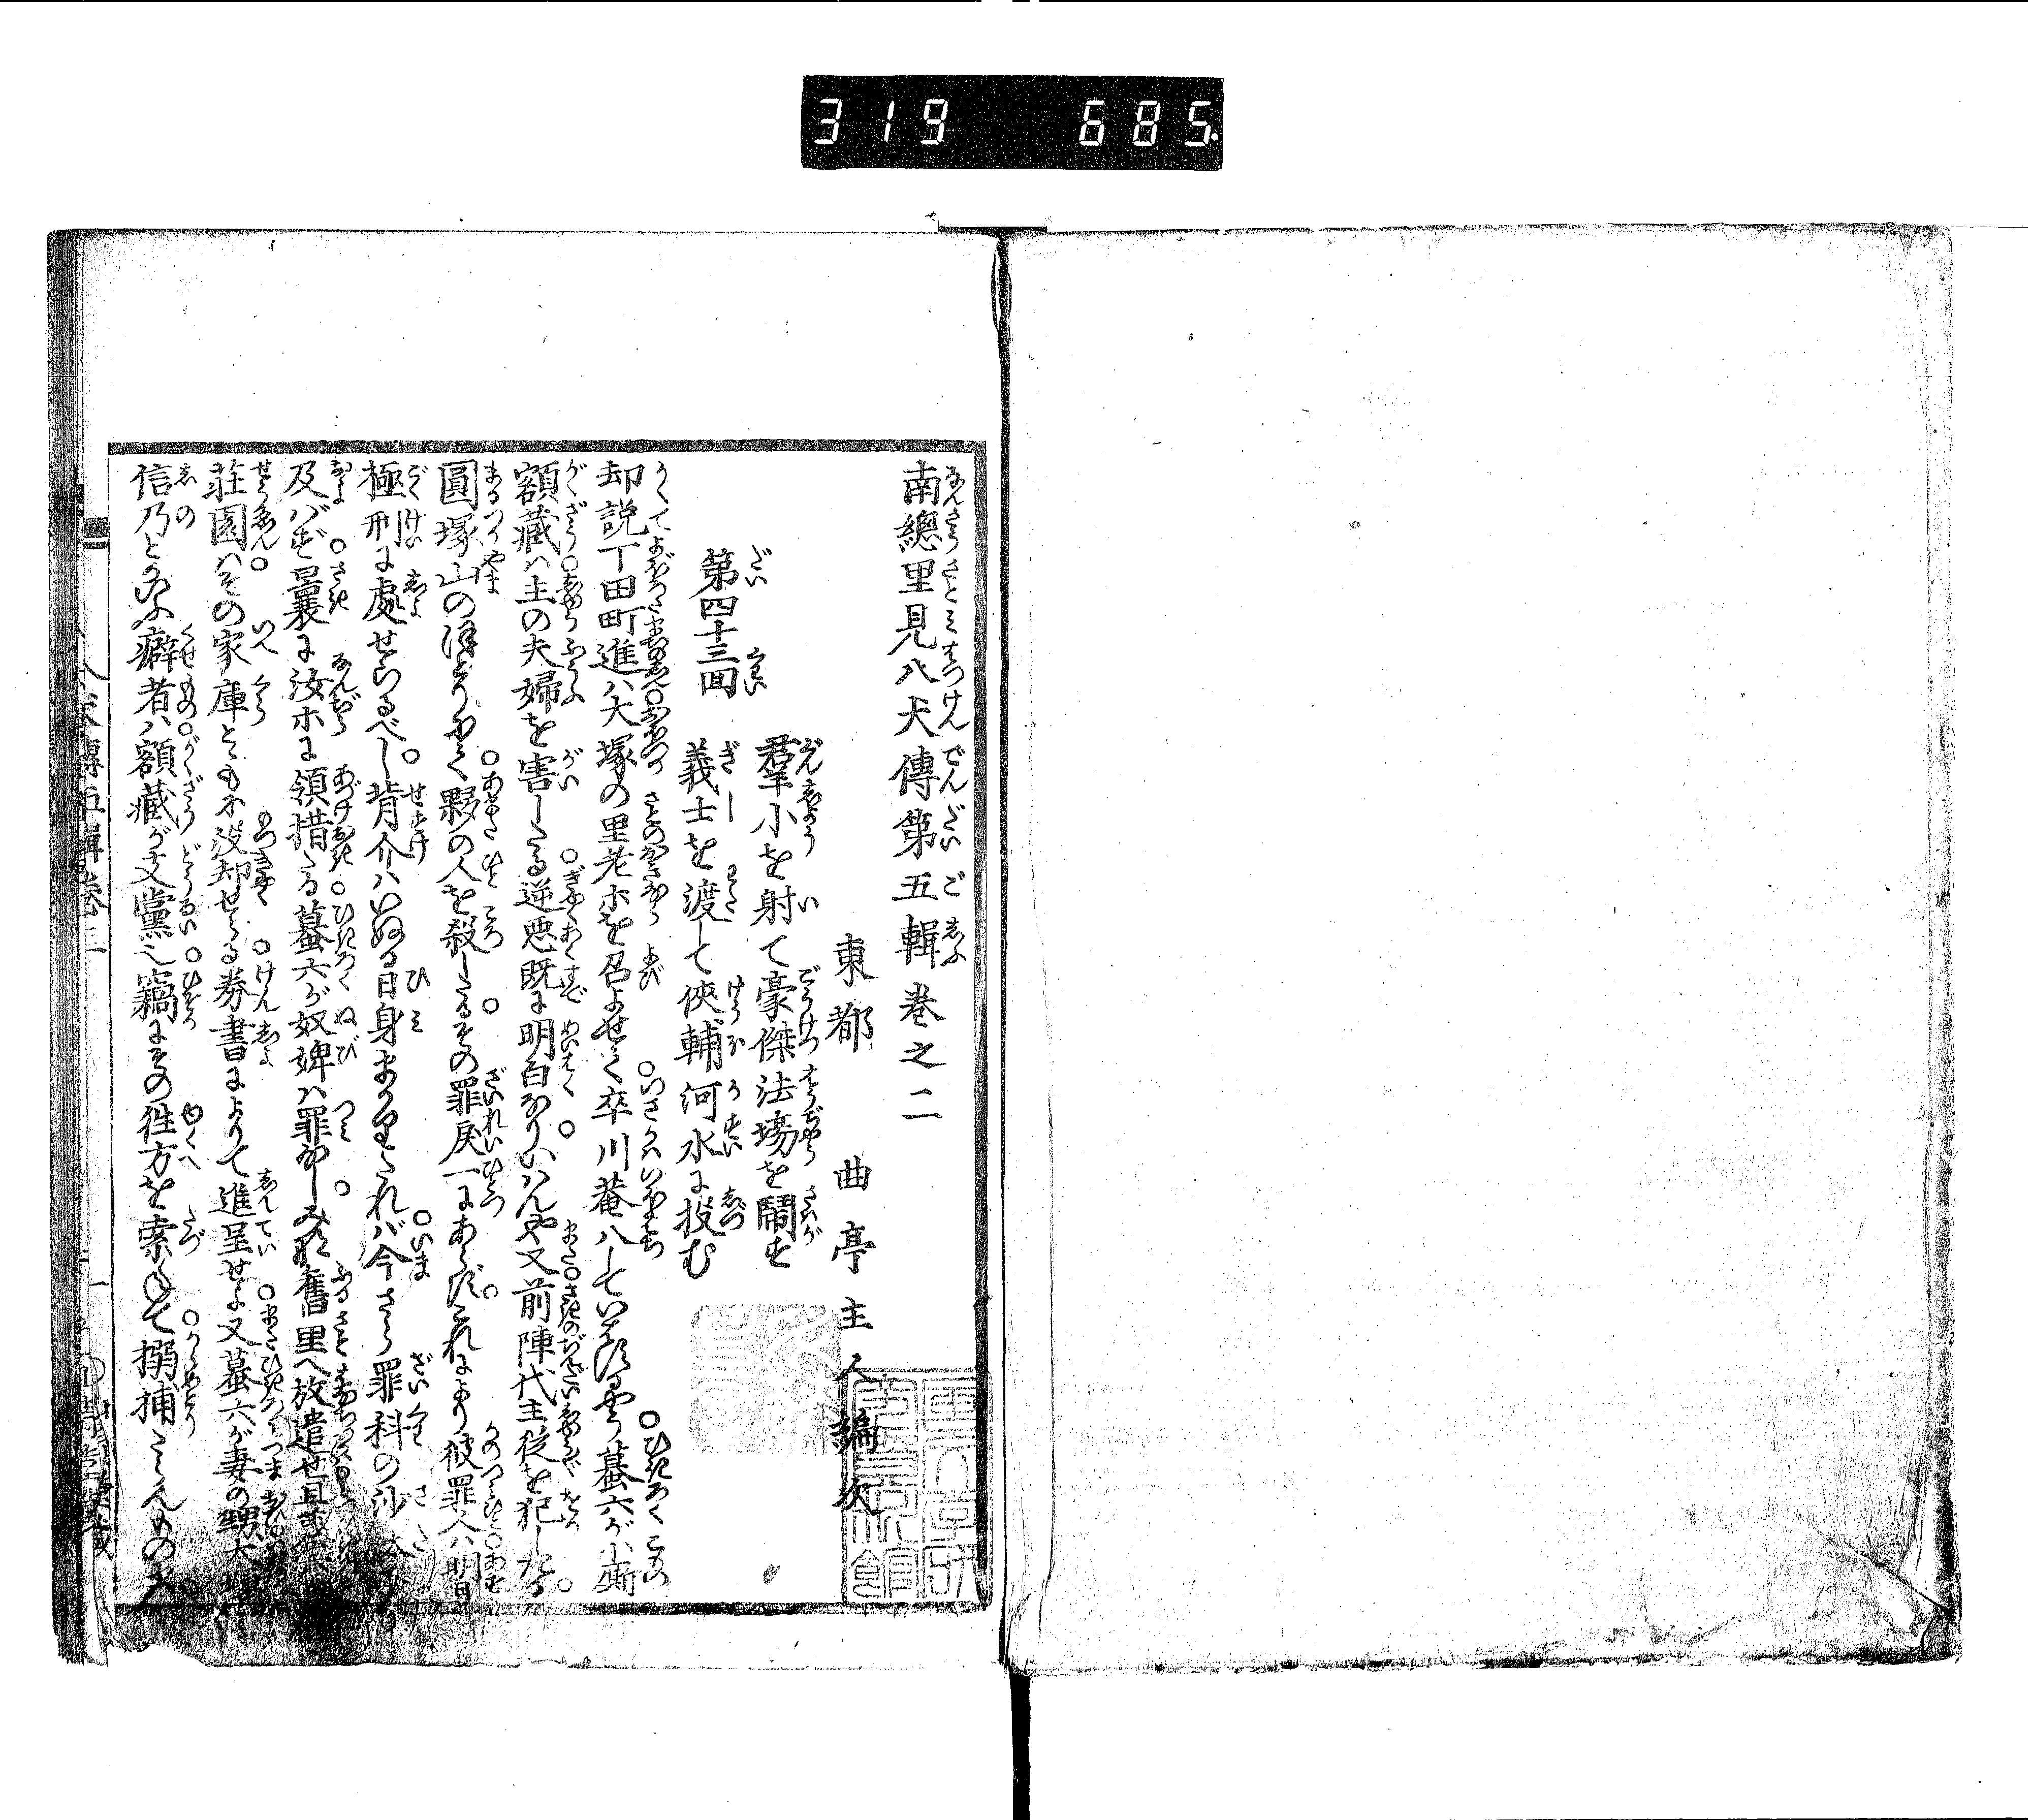 319 685.
南總里見八犬傳第五輯巻之二
東都 曲亭主人編次
第四十三回
羣小を射て豪傑法塲を鬧す
義士を渡して俠輔河水に投む
却説丁田町進ハ大塚の里老ホを召よせて卒川菴八していはする やう蟇六が小廝
額藏ハ主の夫婦を害したる逆悪既に明白なりいはんや又前陣代主從を犯したる
圓塚山のほとりにて夥の人を殺したるその罪戻一にあらずこれにより彼罪人ハ明日
極刑に處せらるべし背介ハいぬる日身まかりたれバ今さら罪科の沙汰
及バず曩に汝ホに領措たる蟇六が奴婢ハ罪なしみな舊里へ放遣せ且
荘園ハその家庫とゝもに没却せらる券書によりて進呈せよ又蟇六が妻の甥犬塚
信乃とかいふ癖者ハ額藏が支黨也竊にその徃方を索ねて搦捕